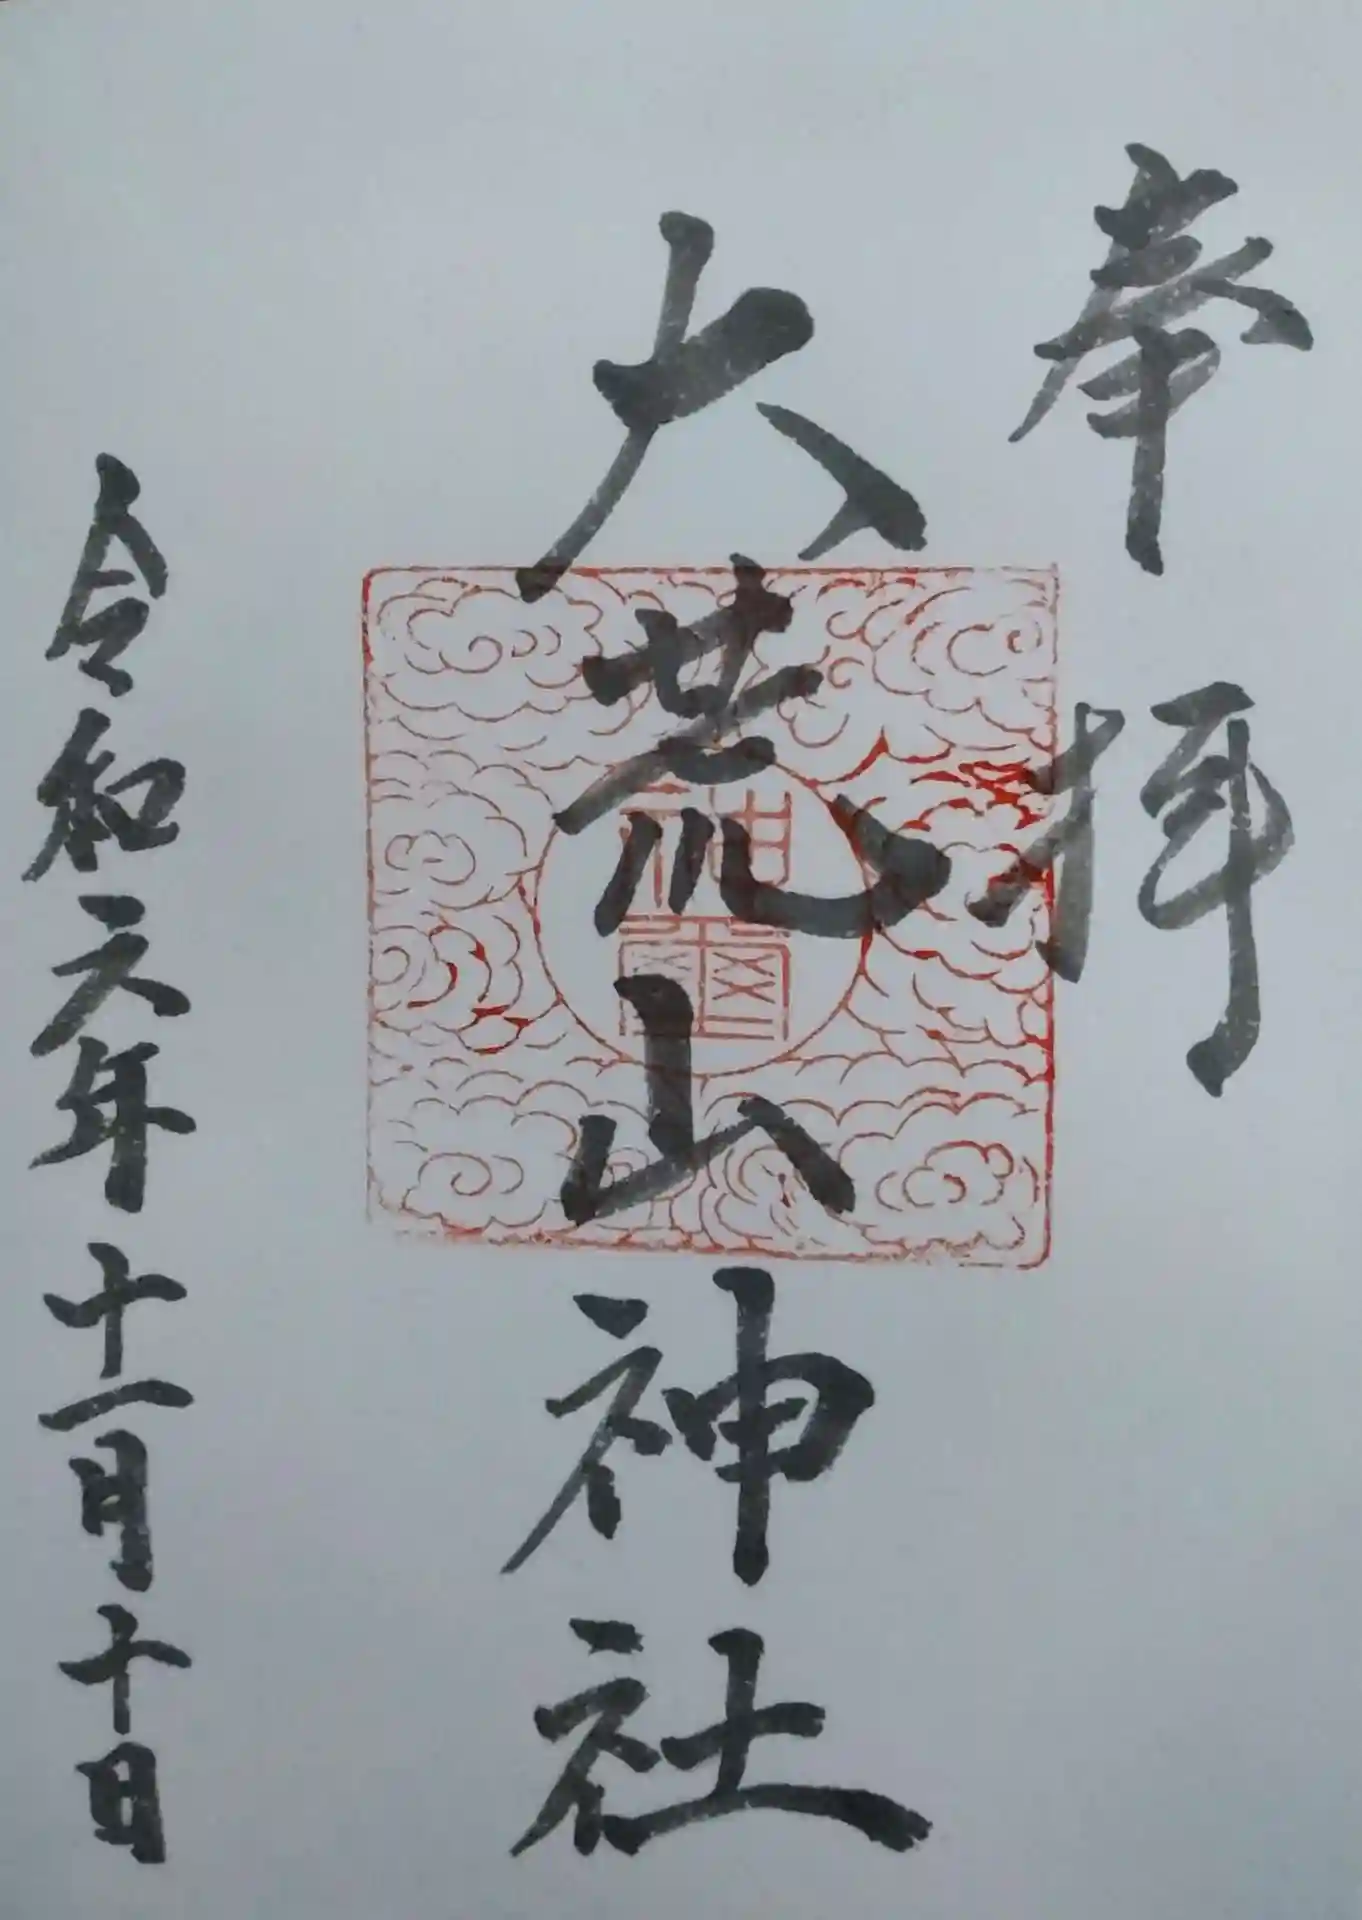 奉拝
大荒山神社
神璽
令和元年十一月十日